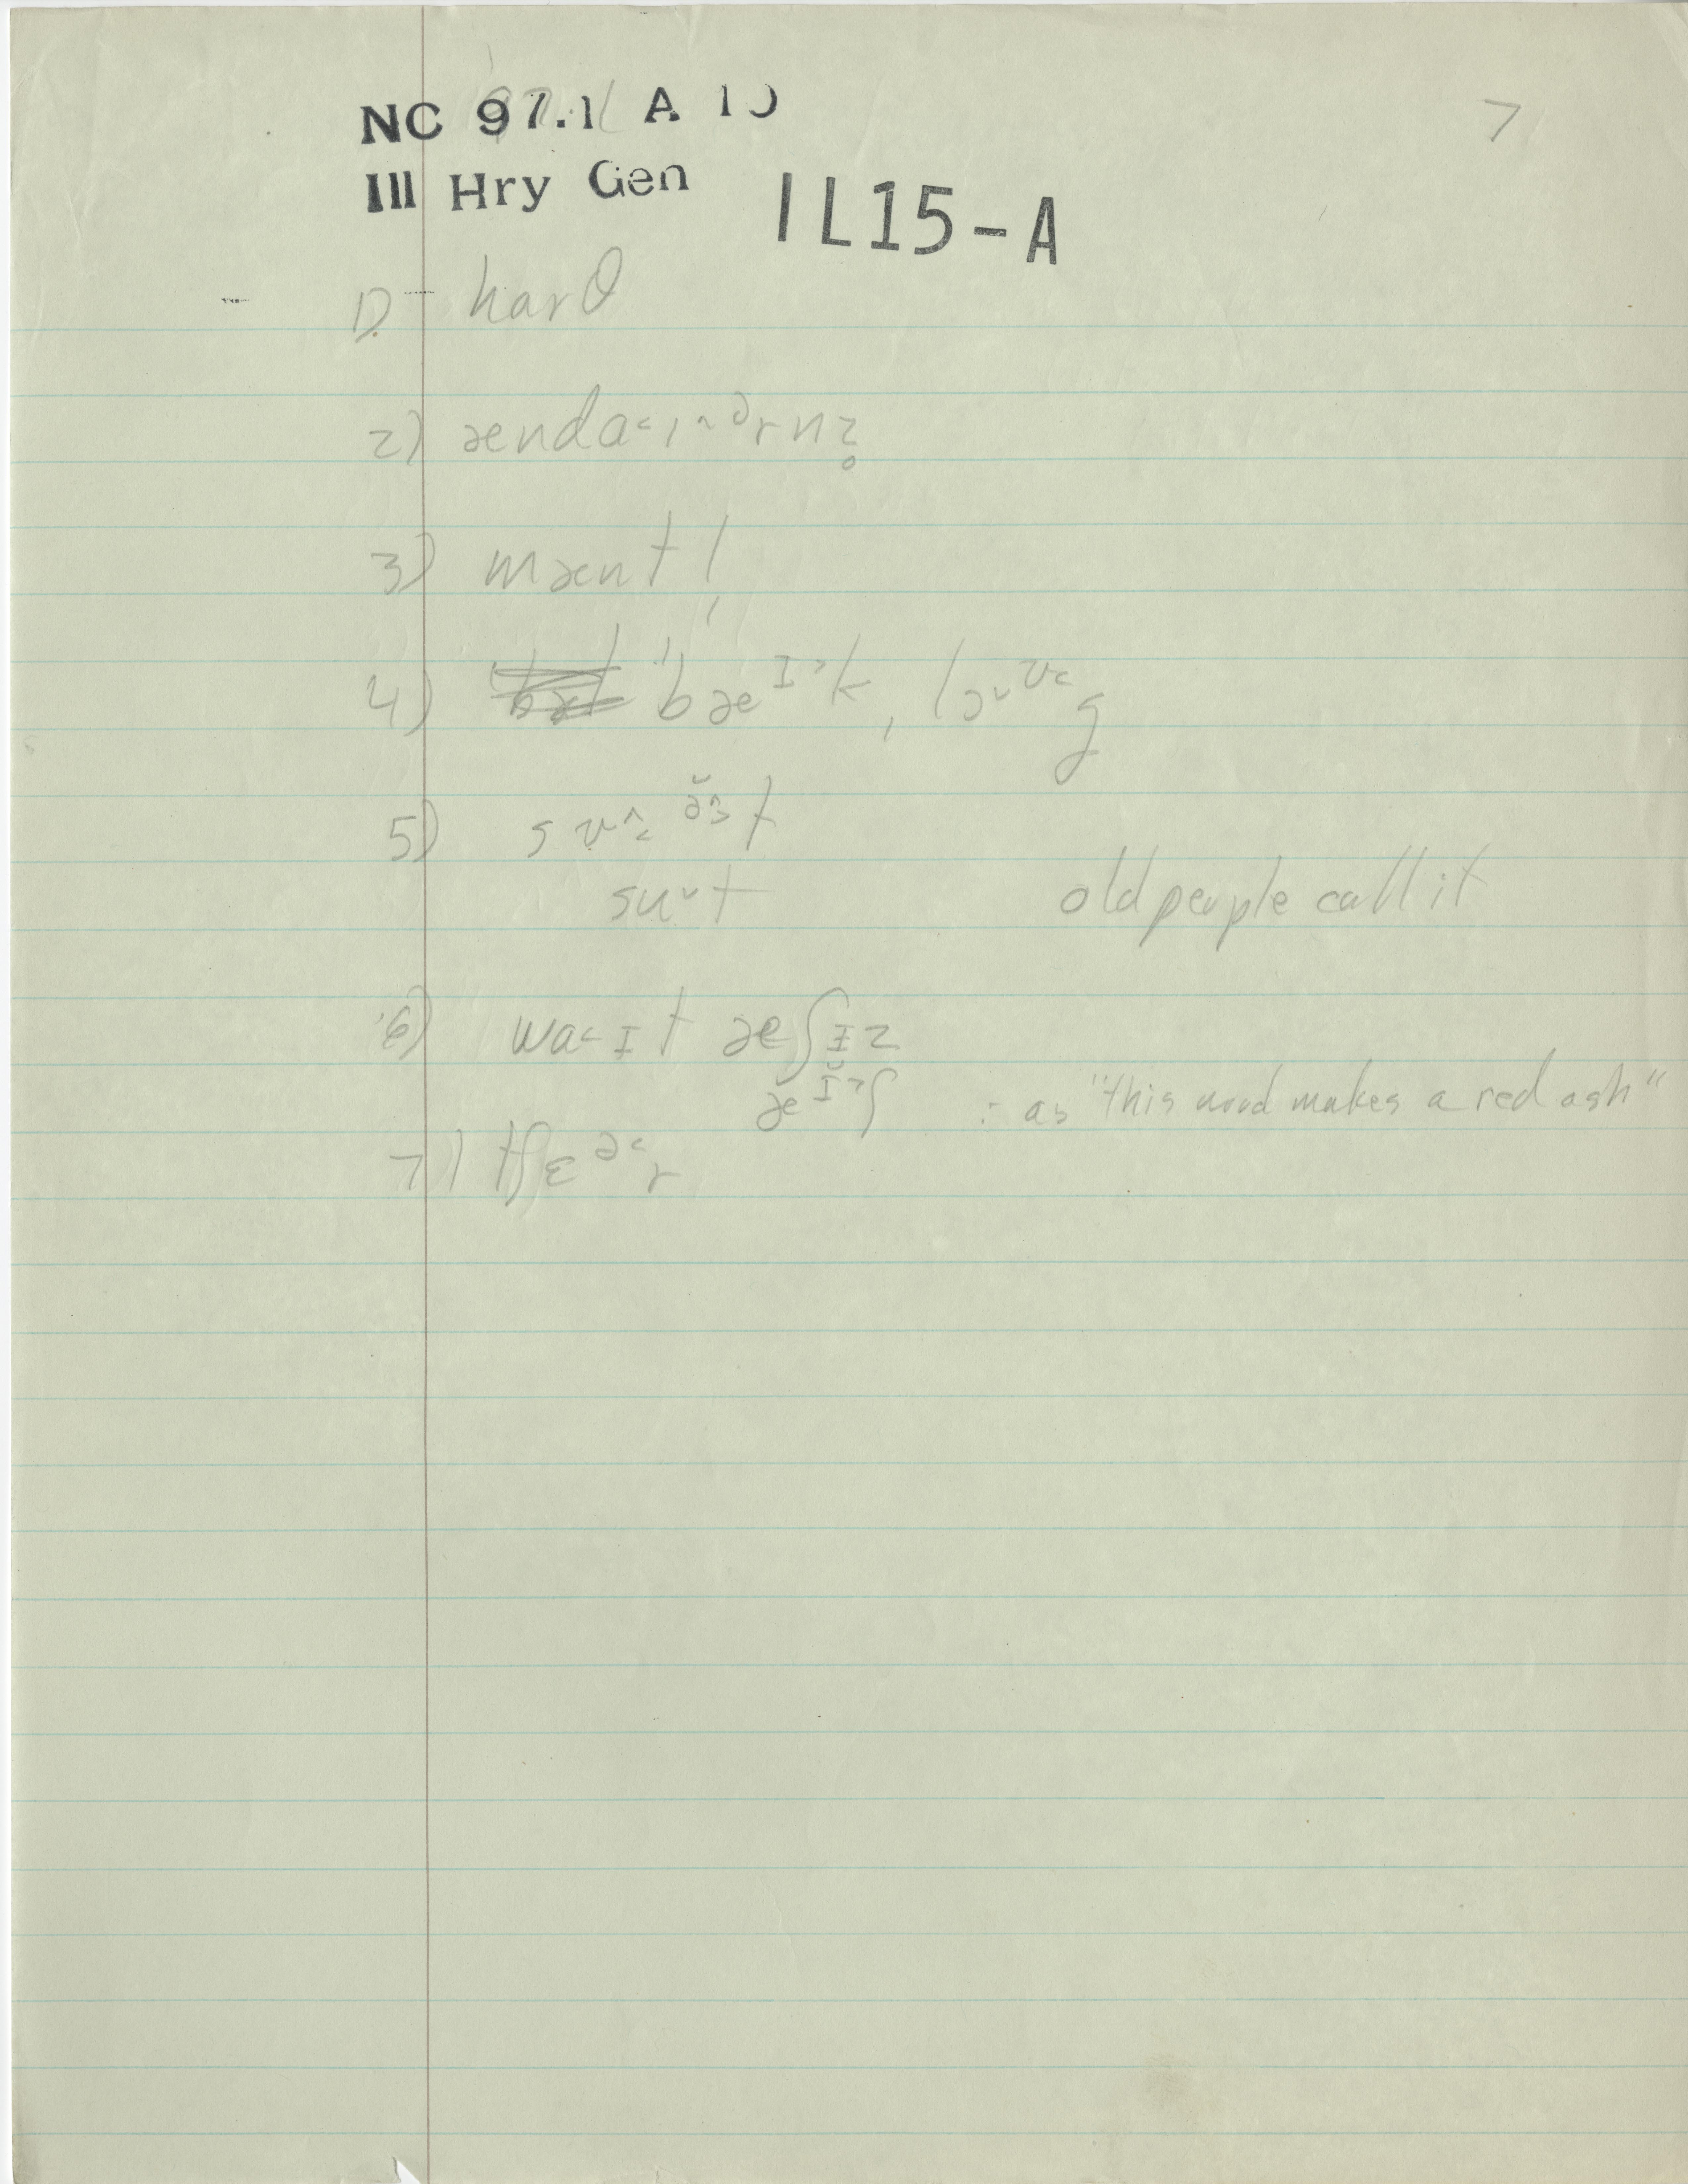 NC 97.1 A 10
7
Ill Hry Gen
IL15-A
1) harθ
2) ændɑ˂ɪ^ərnz̥
3) mænt!
4) 'bæᴵ˃k, lɔ˅ᶷ˂g
5) sʊ^˂ə̆ɜt
su˅t old people call it
6) wa˂ɪt æʃɪz
æᴵ̆˃ʃ : as "this wood makes a red ash"
7) tʃɛᵊ˂r